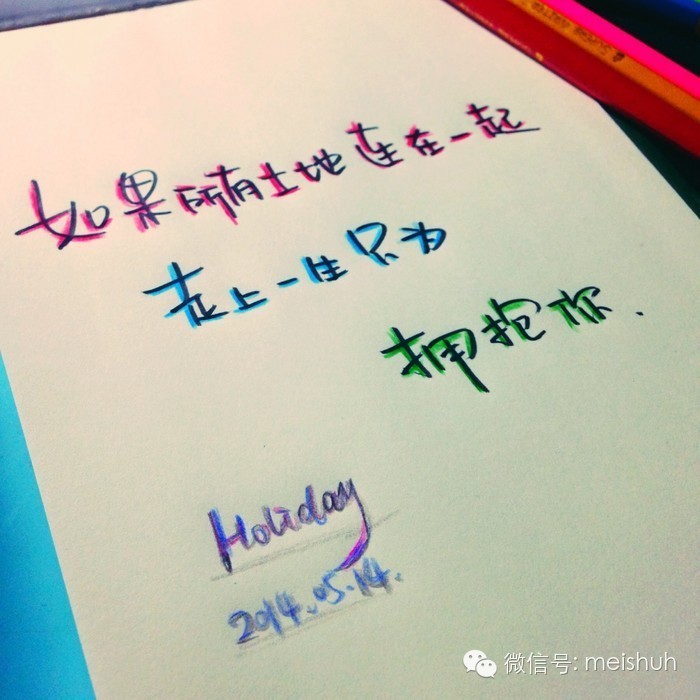 如果所有土地连在一起
走上一生只为
拥抱你.
Holiday
2014.05.14.
微信号: meishuh